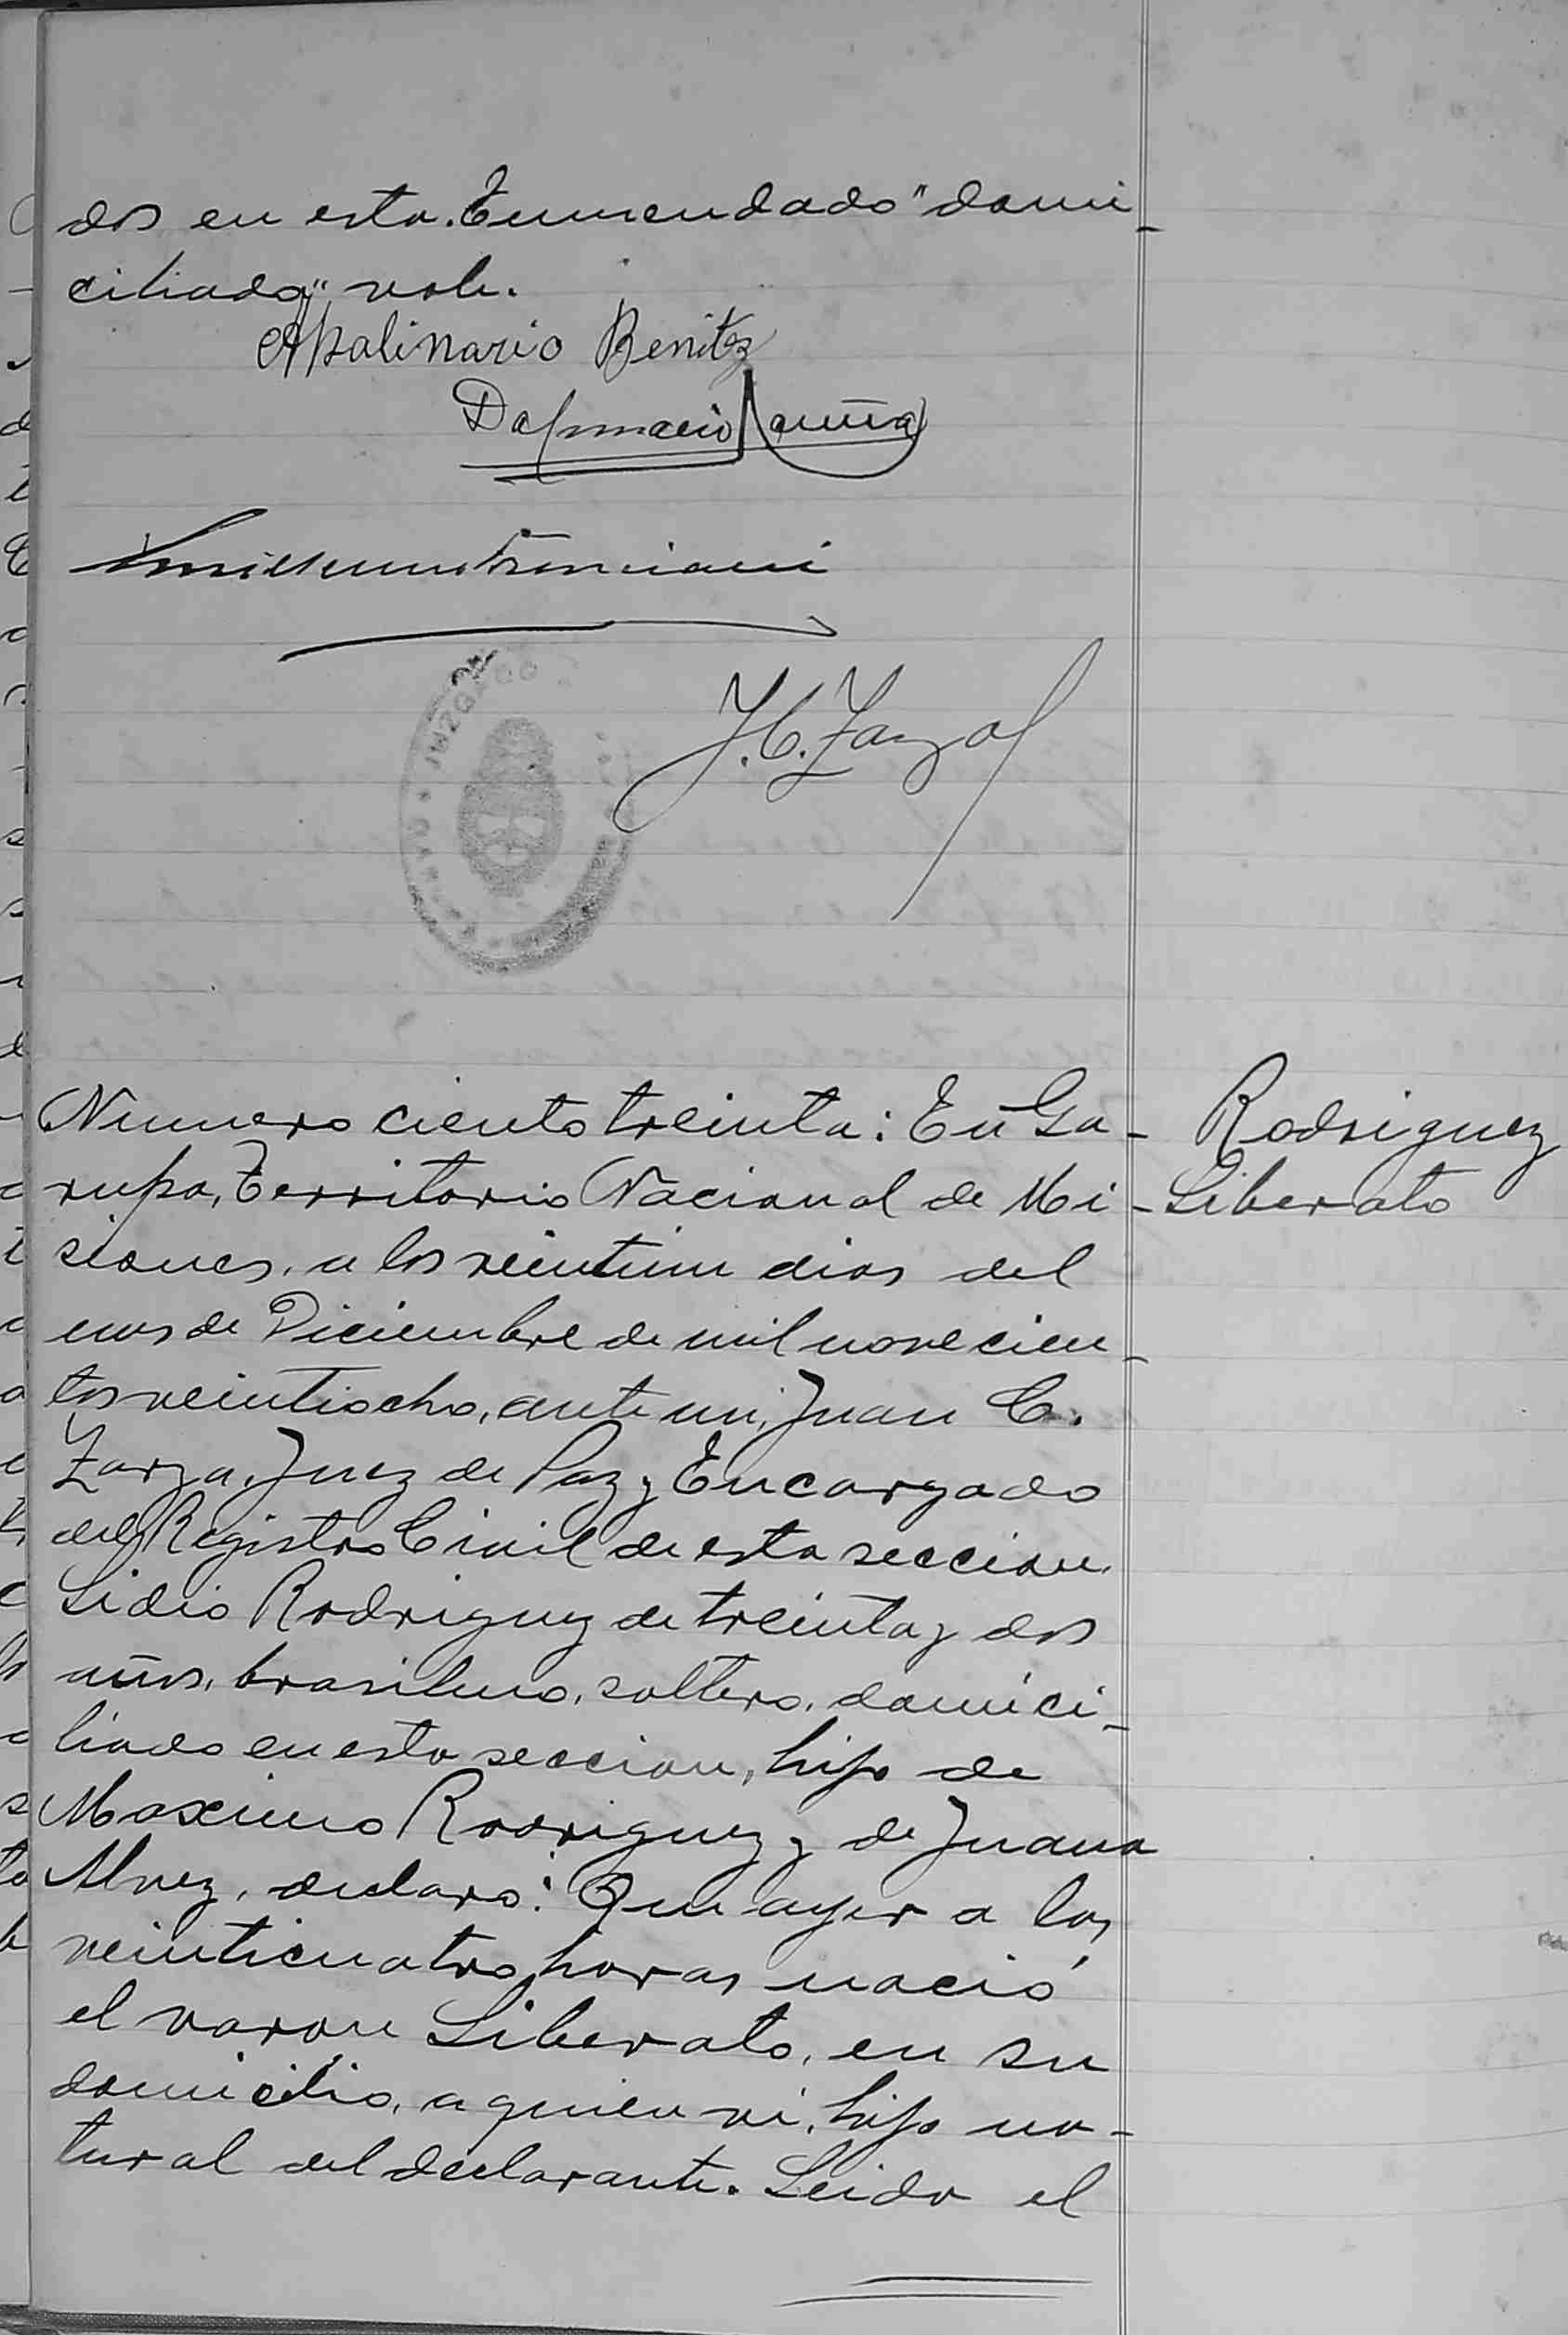 dos en esta. Enmendado "domi-
ciliado" vale.
Apolinario Benitez
Dalmacio Acuña
J.C. Zarza
JUZGADO
Numero ciento treinta: En Ga-
rupa, Territorio Nacional de Mi-
siones, a los veintiun dias del
mes de Diciembre de mil novecien-
tos veintiocho, ante mi, Juan C.
Zarza, Juez de Paz y Encargado
del Registro Civil de esta seccion,
Lidio Rodriguez de treinta y dos
años, brasilero, soltero, domici-
liado en esta seccion, hijo de
Maximo Rodriguez y de Juana
Alvez, declaro: Que ayer a las
veinticuatro horas nació
el varon Liberato, en su
domicilio, a quien vi, hijo na-
tural del declarante. Leida el
Rodriguez
Liberato